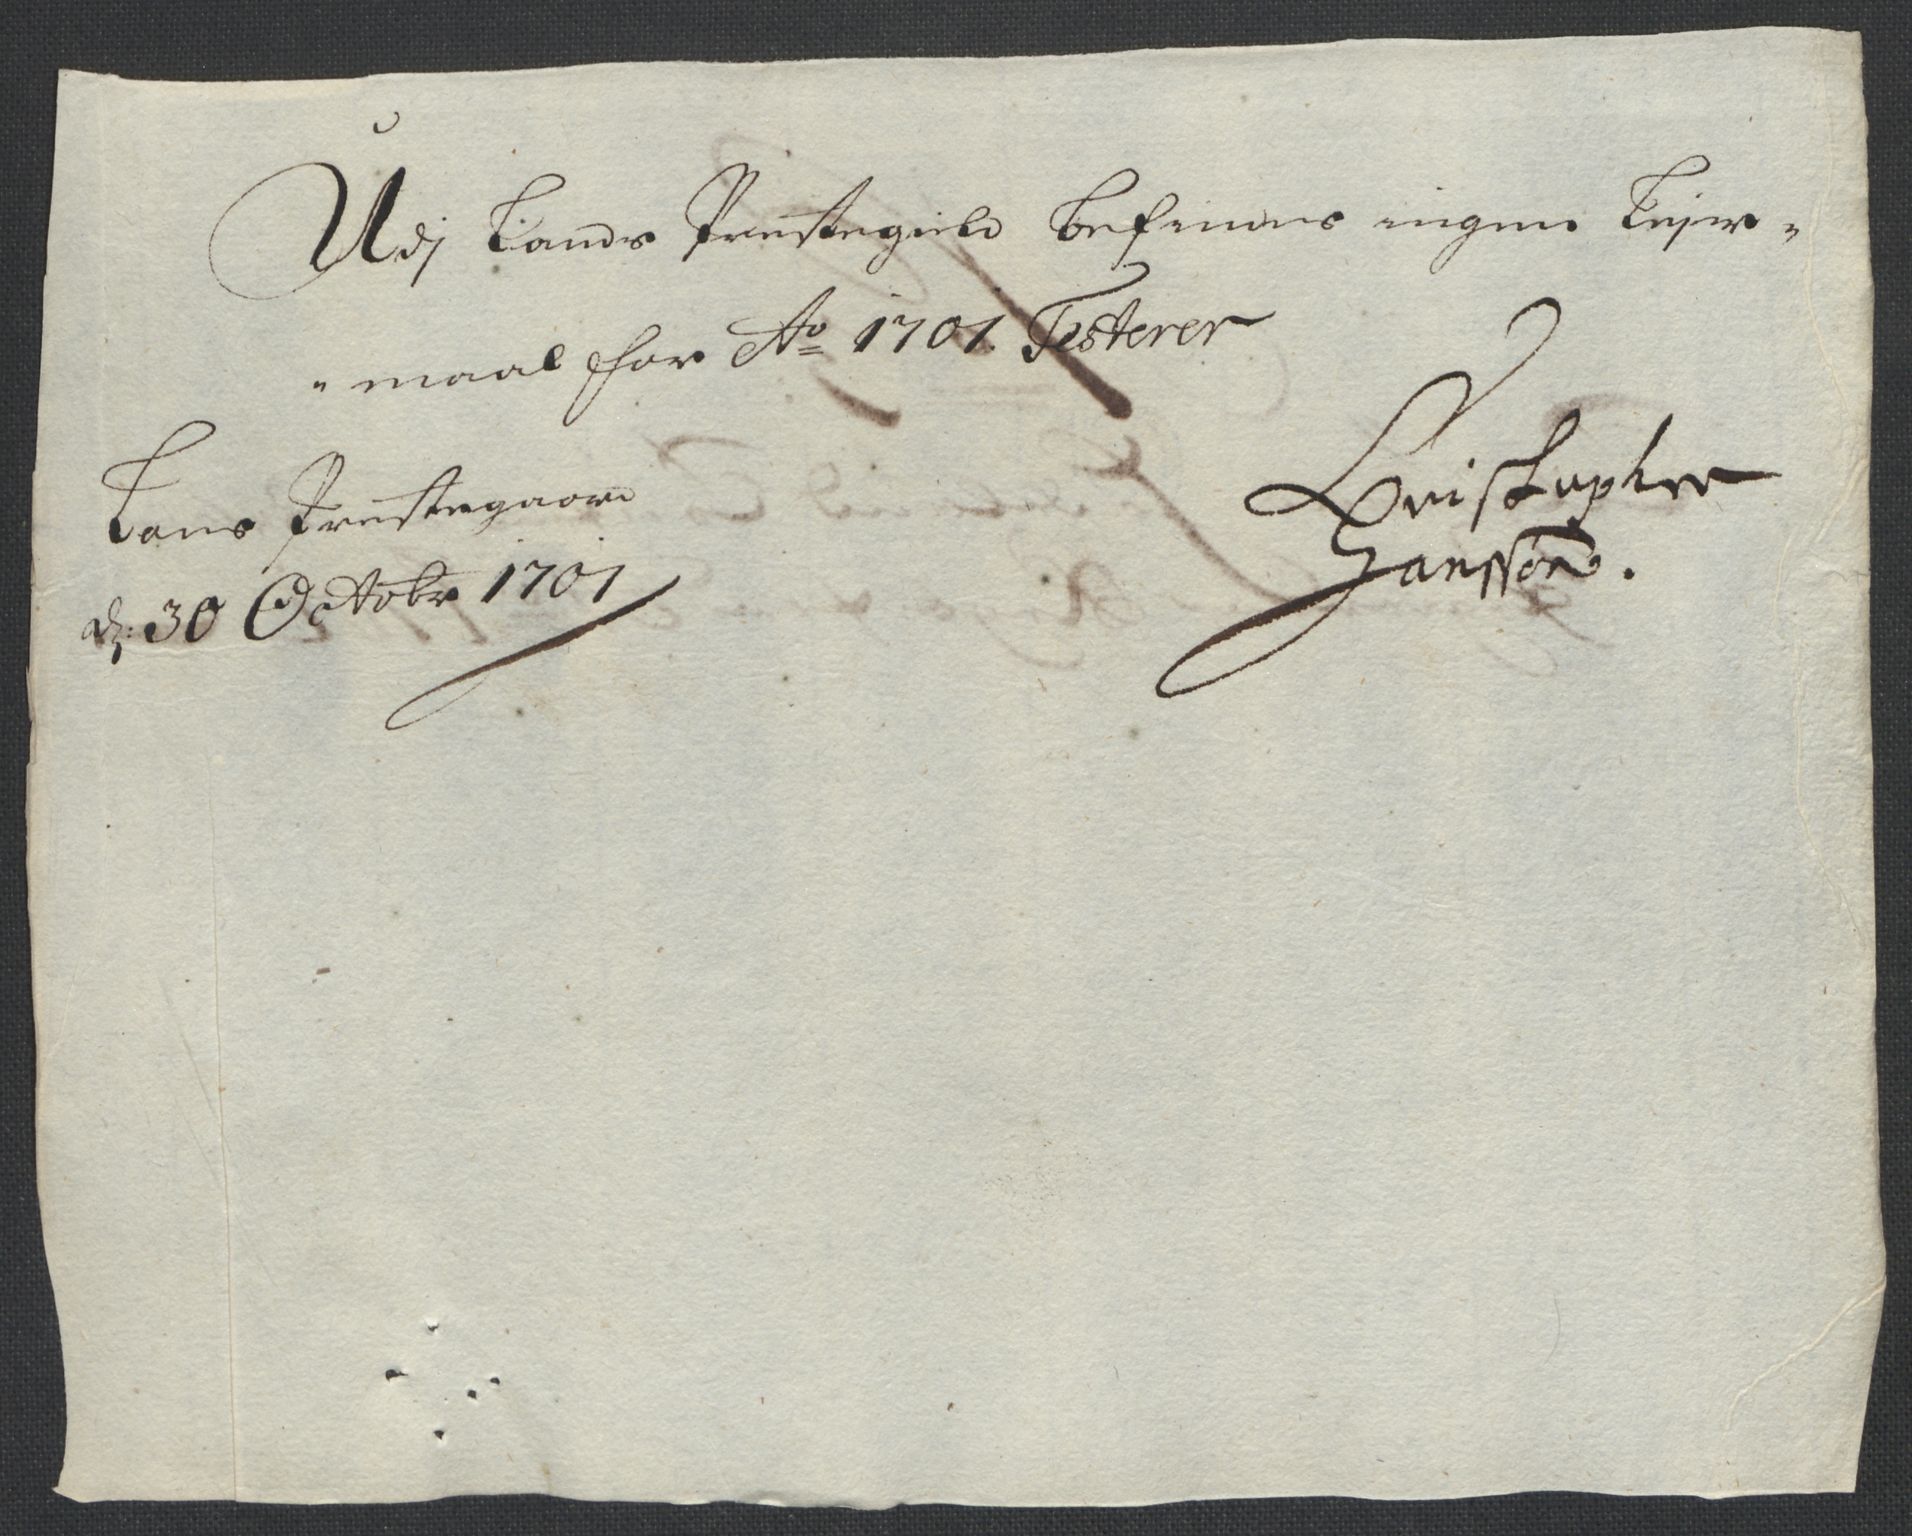 Udj Lands Prestegield befindes ingen Leyer-
-maal for Ao 1701. Testerer
Lans Prestegaard
d: 30 Octobr 1701
Christopher
Hanssøn.